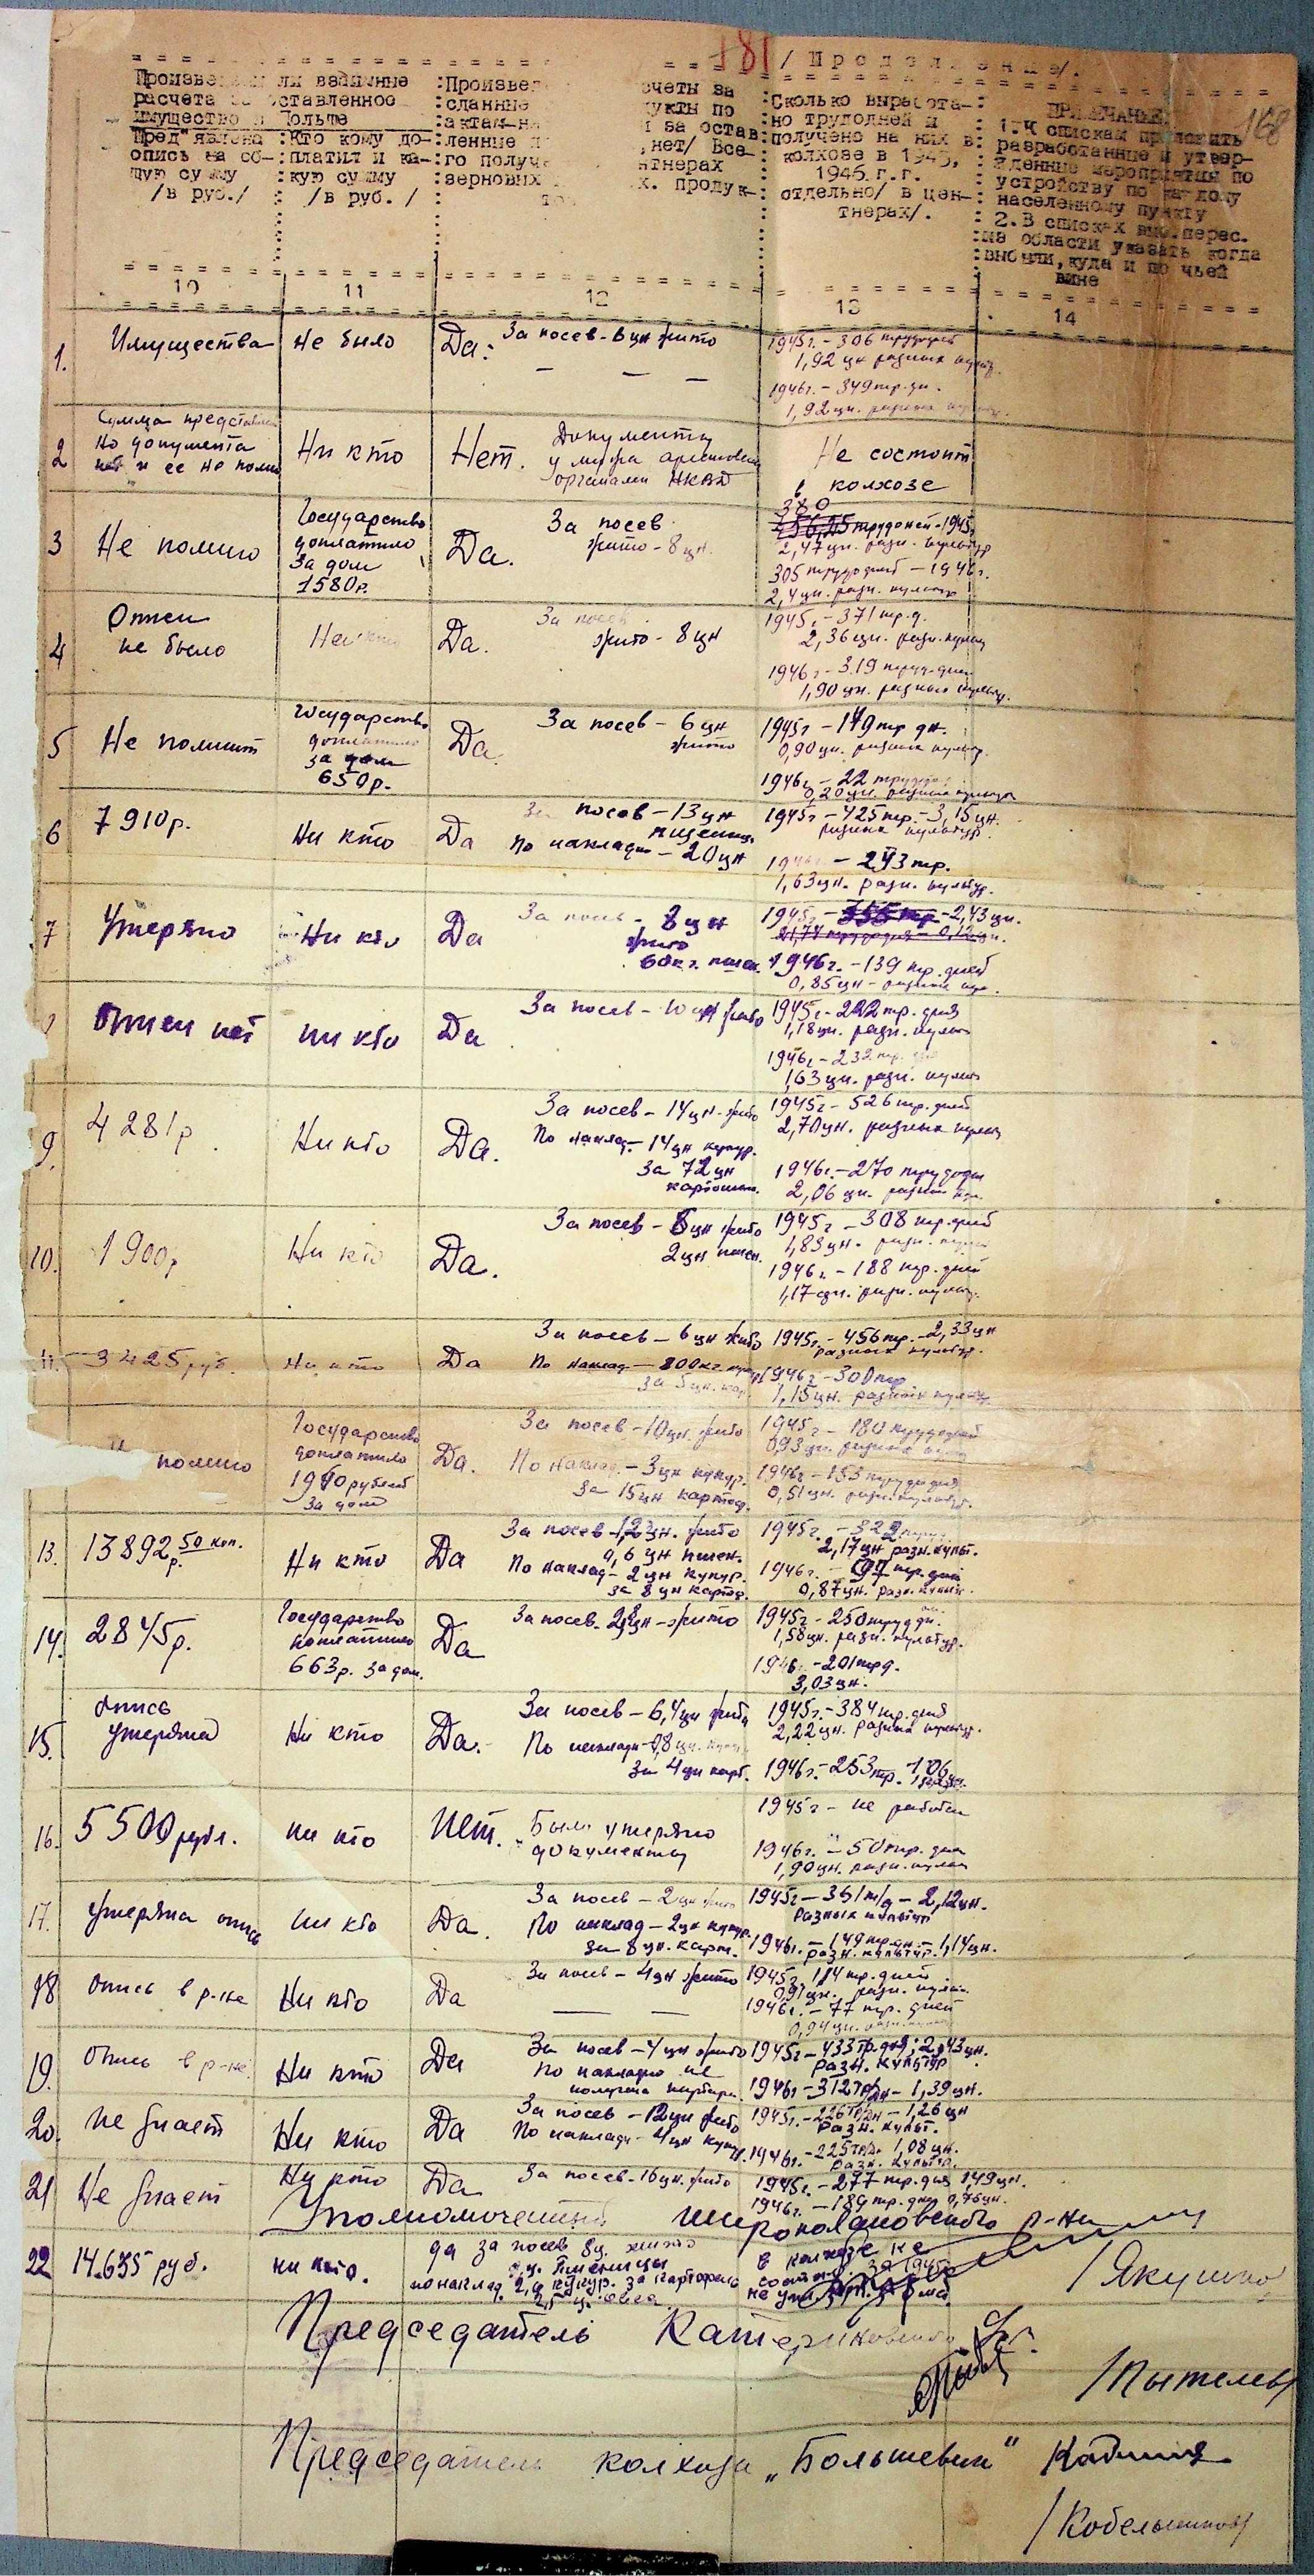 181 /Продолжение/.
168
Произве ли взаимные
расчета за оставленное
имущество в Польше
Пред"явлена
опись на об-
щую сумму
/в руб./
Кто кому до-
платил и ка-
кую сумму
/в руб. /
Произве счеты за
сданные укты по
актам-н за остав
ленные нет/ Все-
го получ нтнерах
зерновых х. продук-
Сколько выработа-
но трудодней и
получено на них в
колхозе в 1945,
1946.г.г.
отдельно/ в цен-
тнерах/.
ПРИМЕЧАНИЕ.
1.К спискам приложить
разработанные и утвер-
жденные мероприятия по
устройству по каждому
населенному пункту
2.В списках выб.перес.
из области указать когда
выбыли,куда и по чьей
вине
10 11 12 13 14
1. Имущества не было Да: За посев - 6 цн жито
1945г. - 306 трудодней
1,92 цн разных культ.
1946г. - 349 тр. дн.
1,92 цн. разных культур.
2 Сумма представлен
но документа
нет и ее не помн
Ни кто Нет. Документы
у мужа арестованы
органами НКВД
Не состоит
в колхозе
3 Не помню
Государство
доплатило
за дом
1580р.
Да. За посев
жито - 8 цн.
380
трудоней - 1945г
2,47 цн. разн. культур
305 трудодней - 1946г.
2,4 цн. разн. культур
4 Описи
не было
Да. За посев
жито - 8 цн
1945г. - 371 тр.д.
2,36 цн. разн. культ
1946г - 319 труд.дней
1,90 цн. разных культур.
5 Не помнит
Государство
доплатило
за дом
650р.
Да. За посев - 6 цн
жито
1945г - 149 тр дн.
0,90 цн. разных культур.
1946г - 22 трудод
0,20 цн. разных культур
6 7910р. Ни кто Да За посев - 13 цн
пшеницы
По накладн - 20 цн
1945г - 425 тр. - 3,15 цн.
разных культур.
1946г - 293 тр.
1,63 цн. разн. культур.
7 Утеряно Ни кто Да За посев - 8 цн
жито
60 кг. пшен.
1945г - 355 тр - 2,43 цн.
1946г. - 139 тр. дней
0,85 цн - разных кул.
Описи нет ни кто Да За посев - 10 цн жито
1945г - 222 тр. дня
1,18 цн. разн. культ
1946г - 232 тр. дня
1,63 цн. разн. культ
9. 4281р. Ни кто Да. За посев - 14 цн - жито
По наклад. - 14 цн кукур.
за 72 цн
картошки.
1945г - 526 тр. дней
2,70 цн. разных культ
1946г. - 270 трудодн
2,06 цн. разных кул.
10. 1900р Ни кто Да. За посев - 8 цн жито
2 цн пшен.
1945г - 308 тр. дней
1,83 цн. разн. культ
1946г. - 188 тр. дней
1,17 цн. разн. культ.
11. 3425 руб. Ни кто Да За посев - 6 цн жито
По наклад - 800 кг кукур
за 5 цн. кар.
1945г. - 456 тр. - 2,33 цн
разных культур.
1946г - 300 тр
1,15 цн. разных культур
помню
Государство
доплатило
1940 рублей
за дом
Да. За посев - 10 цн. жито
По наклад. - 3 цн кукур.
за 15 цн картоф.
1945г - 180 трудодней
0,93 цн. разных культ
1946г - 153 трудодня
0,51 цн. разн. культур.
13. 13892 р. 50 коп. Ни кто Да За посев - 12 цн. жито
0,6 цн пшен.
По наклад - 2 цн кукур.
за 8 цн картоф.
1945г. - 322 труд
2,17 цн разн. культ.
1946г. - 197 тр. дней
0,87 цн. разн. культ.
14. 2845р.
Государство
доплатило
663р. за дом.
Да За посев - 22 цн - жито
1945г - 250 труд дн.
1,58 цн. разн. культур.
1946г. - 201 тр д.
3,03 цн.
15. опись
утеряна
Ни кто Да. За посев - 6,4 цн жито
По накладн - 0,8 цн. кукур
за 4 цн карт.
1945г. - 384 тр. дней
2,22 цн. разных культур.
1946г. - 253 тр. - 1,06 цн.
16. 5500 рубл. ни кто Нет. Были утеряны
документы
1945г - не работал
1946г. - 50 тр. дня
1,90 цн. разн. культ
17. Утеряна опись ни кто Да. За посев - 2 цн жито
По наклад - 2 цн кукур.
за 8 цн. карт.
1945г - 351 т/д - 2,12 цн.
разных культур
1946г. - 149 тр.дн. - 1,14 цн.
разн. культур.
18 опись в р-не Ни кто Да За посев - 4 цн жито
1945г. 114 тр. дней
0,91 цн. разн. культ.
1946г. - 77 тр. дней
0,94 цн. разн.
19. Опись в р-не Ни кто Да За посев - 4 цн жито
По накладно не
получено
1945г - 433 тр.дня; 2,43 цн.
разн. культур
1946г - 312 тр/дн - 1,39 цн.
20. Не знает Ни кто Да За посев - 12 цн жито
По накладн - 4 цн кукур.
1945г. - 226 тр/дн - 1,26 цн
разн. культ.
1946г. - 225 тр/дн 1,08 цн.
разн. культур.
21 Не знает Ни кто Да За посев - 16 цн. жито
1945г. - 277 тр. дня 1,49 цн.
1946г. - 189 тр. дня 0,76 цн.
Уполномоченный Широколановского р-на
22 14.635 руб. ни кто. да за посев 8 ц жито
ц. пшеницы
по наклад. 2,4 кукур. за картофель
2,5 ц. овса.
в колхозе не
состоит за 1945
/Якушко
Председатель Катериновского
/Пытелев/
Председатель колхоза „Большевик"
/Кобельников/